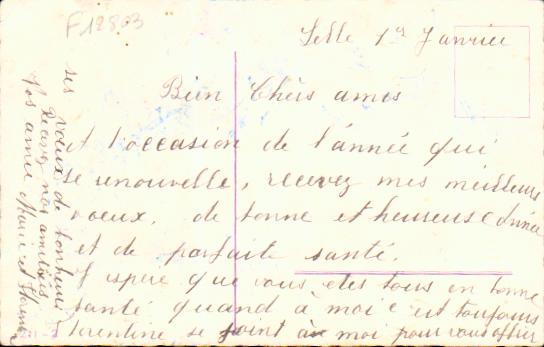 F12803
Selle 1er Janvier
Bien Chèrs amis
et l'occasion de l'année qui
se renouvelle, recevez mes meilleurs
voeux. de bonne et heureuse année
et de parfaite santé.
J'espère que vous etes tous en bonne
santé quand à moi c'est toujours
Florentine se joint à moi pour vous offrir
ses vœux de bonheur
Recevez nos amitiés
Vos amies Marie et